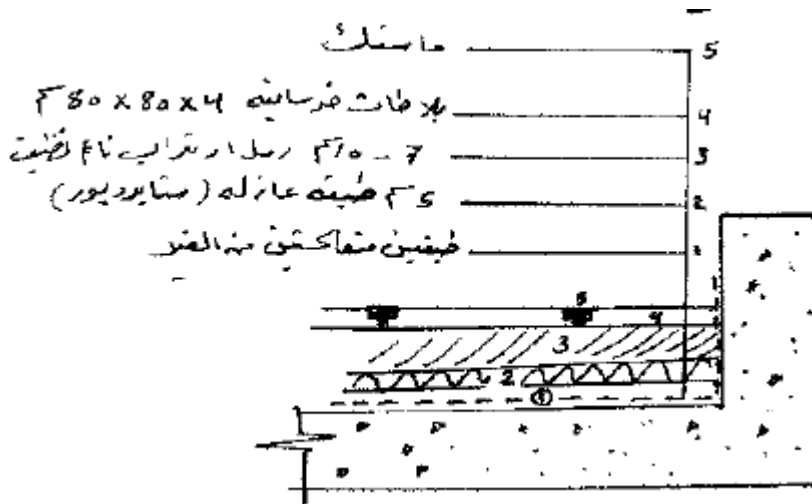 ماستك 5
بلاطات خرسانيه 4×80×80 سم 4
7-10 سم رمل او تراب ناعم نظيف 3
5 سم طبقه عازله (ستايروبور) 2
طبقتين متعاكستين من القير 1
5
4
3
2
1